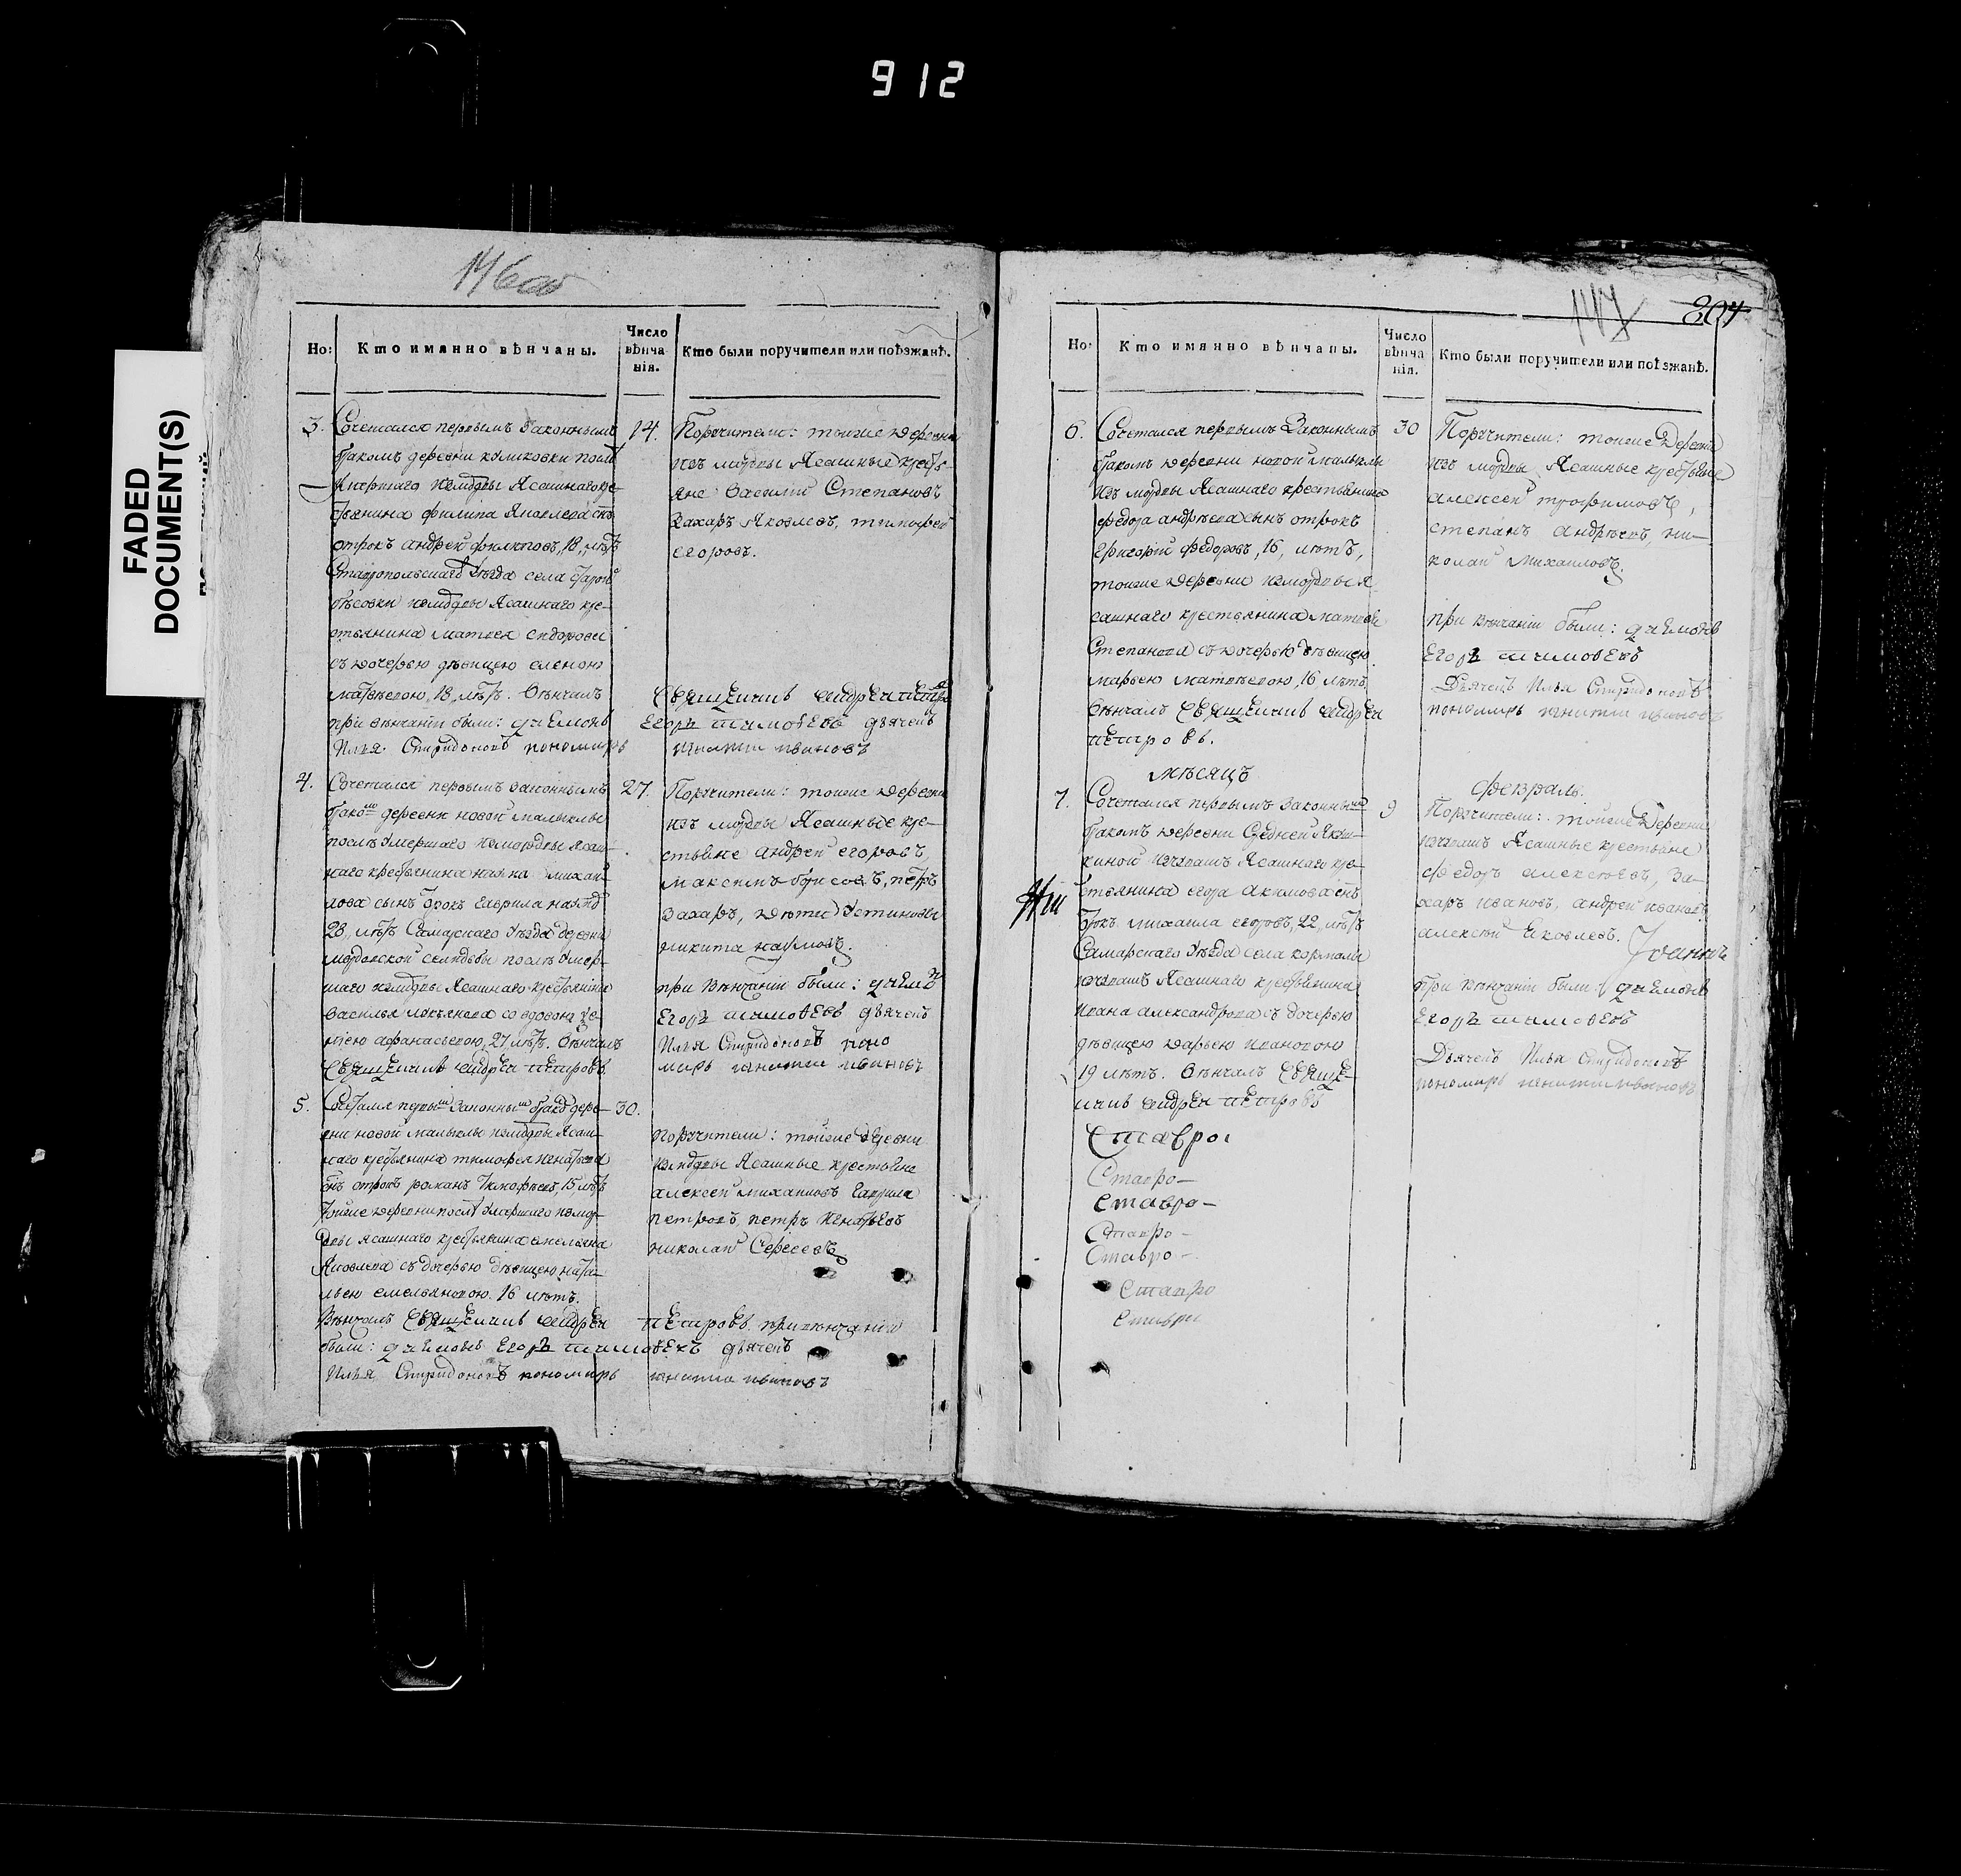 912
FADED
DOCUMENT(S)
146об
Но: Кто имянно вѣнчаны. Число вѣнчанія. Кто были поручители или поѣзжанѣ.
3. Сочетался первымъ законнымъ
бракомъ деревни куликовки послѣ
Умершаго измордвы Ясашнаго кре-
стьянина филипа Яковлева снъ
отрокъ андрей филиповъ, 18, лѣтъ
Ставропольскаго Уѣзда села
измордвы Ясашнаго кре-
стьянина матвея сидорова
съ дочерью дѣвицею еленою
матвѣевою, 18, лѣтъ. Вѣнчалъ
при вѣнчаніи были: діаконъ
Илья Спиридоновъ пономарь
14.
Поручители: тоиже деревни
изъ мордвы Ясашные кресть-
яне Василии Степановъ
Захаръ Яковлевъ, тимофеи
егоровъ.
Священникъ андреи петровъ
Егоръ тимоѳеевъ дьячекъ
игнатии ивановъ
4. Сочетался первымъ законнымъ
бракомъ деревни новой малыклы
послѣ Умершаго измордвы Ясаш-
наго крестьянина михаи-
лова сынъ отрокъ гаврила
28, лѣтъ Самарскаго Уѣзда деревни
мордовской селитьбы послѣ Умер-
шаго измордвы Ясашнаго крестьянина
Василья со вдовою
афанасьевою, 27 лѣтъ. Вѣнчалъ
Священникъ андреи петровъ
27.
Поручители: тоиже деревни
изъ мордвы Ясашные кре-
стьяне андреи егоровъ,
максимъ борисовъ, петръ
Захаръ, дѣти Устиновы
никита наумовъ.
при вѣнчаніи были: діаконъ
Егоръ тимоѳеевъ дьячекъ
Илья Спиридоновъ поно
марь игнатии ивановъ
5. Сочетался первымъ законнымъ бракомъ дере-
вни новой малыклы измордвы Ясаш-
наго крестьянина тимофея игнатьева
снъ отрокъ романъ тимофѣевъ, 15 лѣтъ
тоиже деревни послѣ Умершаго измор-
двы ясашнаго крестьянина емельяна
Яковлева съ дочерью дѣвицею ната-
льею емельяновою. 16 лѣтъ.
Вѣнчалъ Священникъ андреи петровъ. при вѣнчаніи
были: діаконъ Егоръ тимоѳеевъ дьячекъ
Илья Спиридоновъ пономарь игнатии ивановъ
30.
Поручители: тоиже деревни
измордвы Ясашные крестьяне
алексеи михаиловъ гаврила
петровъ, петръ игнатьевъ
николаи Сергеевъ
147
204
Но: Кто имянно вѣнчаны. Число вѣнчанія. Кто были поручители или поѣзжанѣ.
6. Сочетался первымъ Законнымъ
бракомъ деревни новой малыклы
изъ мордвы Ясашнаго крестьянина
федора андрѣева сынъ отрокъ
григорій федоровъ, 16, лѣтъ,
тоиже деревни измордвы я-
сашнаго крестьянина матвея
Степанова съ дочерью дѣвицею
марьею матвѣевою, 16 лѣтъ
Вѣнчалъ Священникъ андреи
петровъ.
30
Поручители: тоиже Деревни
изъ мордвы Ясашные крестьяне
алексеи трофимовъ,
степанъ андрѣевъ, ни-
колаи михаиловъ.
при вѣнчаніи были: діаконъ
Егоръ тимоѳеевъ
Дьячекъ Илья Спиридоновъ
пономарь игнатии ивановъ
мѣсяцъ февраль.
7. Сочетался первымъ законнымъ
бракомъ деревни Средней Якуш-
киной изчувашъ Ясашнаго кре-
стьянина егора акимова снъ
отрокъ михаила егоровъ, 22, лѣтъ
Самарскаго Уѣзда села кормалы
изчувашъ Ясашнаго крестьянина
Ивана александрова съ дочерью
дѣвицею дарьею ивановою
19 лѣтъ. Вѣнчалъ Священ-
никъ андреи петровъ
9
Поручители: тоиже Деревни
изчувашъ Ясашные крестьяне
федоръ алексѣевъ, за-
харъ ивановъ, андреи ивановъ
алексѣи Яковлевъ.
Іоаннъ
при вѣнчаніи были: діаконъ
Егоръ тимоѳеевъ
Дьячекъ Илья Спиридоновъ
пономарь игнатии ивановъ
Ставро
Ставро-
Ставро-
Ставро-
Ставро-
Ставро
Ставро